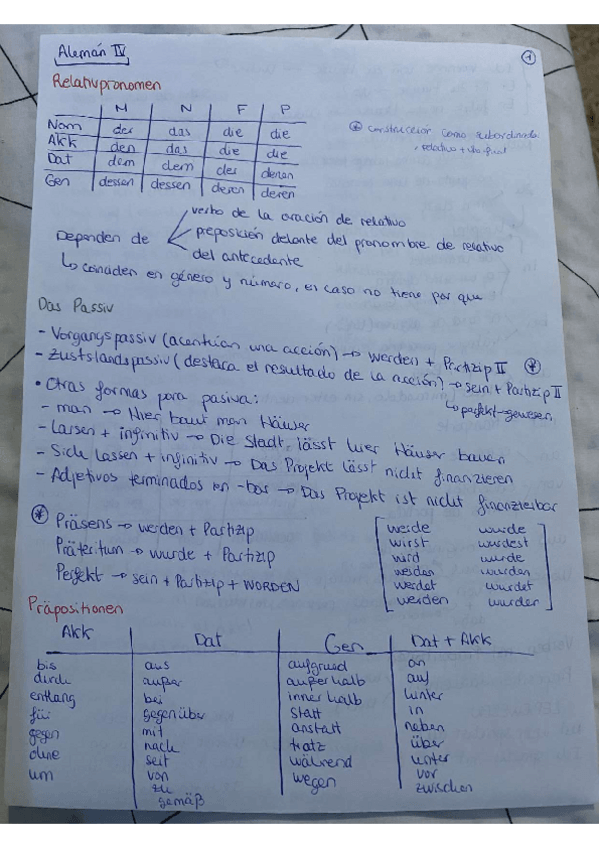 Alemán IV
1
Relativpronomen
M N F P
Nom der das die die
Akk den das die die
Dat dem dem der denen
Gen dessen dessen deren deren
* construcción como subordinada
, relativo + vbo final
Dependen de
verbo de la oración de relativo
preposición delante del pronombre de relativo
del antecedente
↳ coinciden en género y número, es caso no tiene por que
Das Passiv
- Vorgangspassiv (acentúan una acción) → werden + Partizip II *
- Zustslandspassiv (destaca el resultado de la acción) → sein + Partizip II
↳ perfekt-gewesen
• Otras formas para pasiva:
- man → Hier baut man Häuser
- Larsen + infinitiv → Die Stadt, lässt hier Häuser bauen
- Sich lassen + infinitiv → Das Projekt lässt nicht finanzieren
- Adjetivos terminados en -bar → Das Projekt ist nicht finanzierbar
* Präsens → werden + Partizip
Präteritum → wurde + Partizip
Perfekt → sein + Partizip + WORDEN
werde wurde
wirst wurdest
wird wurde
werden wurden
werdet wurdet
werden wurden
Präpositionen
Akk Dat Gen Dat + Akk
bis aus aufgrund an
durch außer außerhalb auf
entlang bei innerhalb hinter
für gegenüber statt in
gegen mit anstatt neben
ohne nach trotz über
um seit während unter
von wegen vor
zu zwischen
gemäß